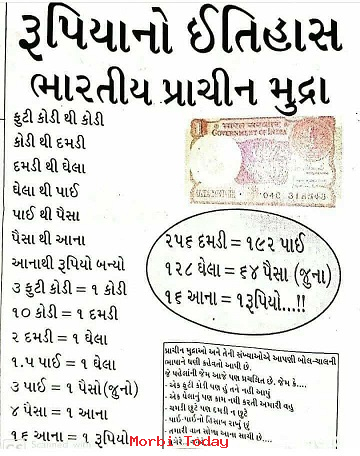 રૂપિયાનો ઈતિહાસ
ભારતીય પ્રાચીન મુદ્રા
ફુટી કોડી થી કોડી
કોડી થી દમડી
દમડી થી ઘેલા
ઘેલા થી પાઈ
પાઈ થી પૈસા
પૈસા થી આના
આનાથી રૂપિયો બન્યો
૩ ફુટી કોડી = ૧ કોડી
૧૦ કોડી = ૧ દમડી
૨ દમડી = ૧ ઘેલા
૧.૫ પાઈ = ૧ ઘેલા
૩ પાઈ = ૧ પૈસો (જુનો)
૪ પૈસા = ૧ આના
૧૬ આના = ૧ રૂપિયો
भारत सरकार
GOVERNMENT OF INDIA
૨૫૬ દમડી = ૧૯૨ પાઈ
૧૨૮ ઘેલા = ૬૪ પૈસા (જુના)
૧૬ આના = ૧રૂપિયો...!!
પ્રાચીન મુદ્રાઓ અને તેની સંખ્યાઓએ આપણી બોલ-ચાલની
ભાષાને ઘણી કહેવતો આપી છે.
જે પહેલાંની જેમ આજે પણ પ્રચલિત છે. જેમ કે....
- એક ફુટી કોડી પણ હું તને નહીં આપું
- એક ઘેલાનું પણ કામ નથી કરતી અમારી વહુ
- ચમડી છુટે પણ દમડી ન છુટે
- પાઈ-પાઈનો હિસાબ રાખું છું
- તમારી વાત સોળા આના સાચી છે....
વગેરે.
Morbi Today